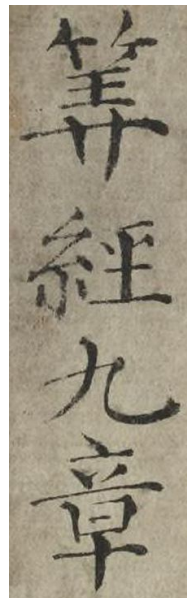 筭經九章